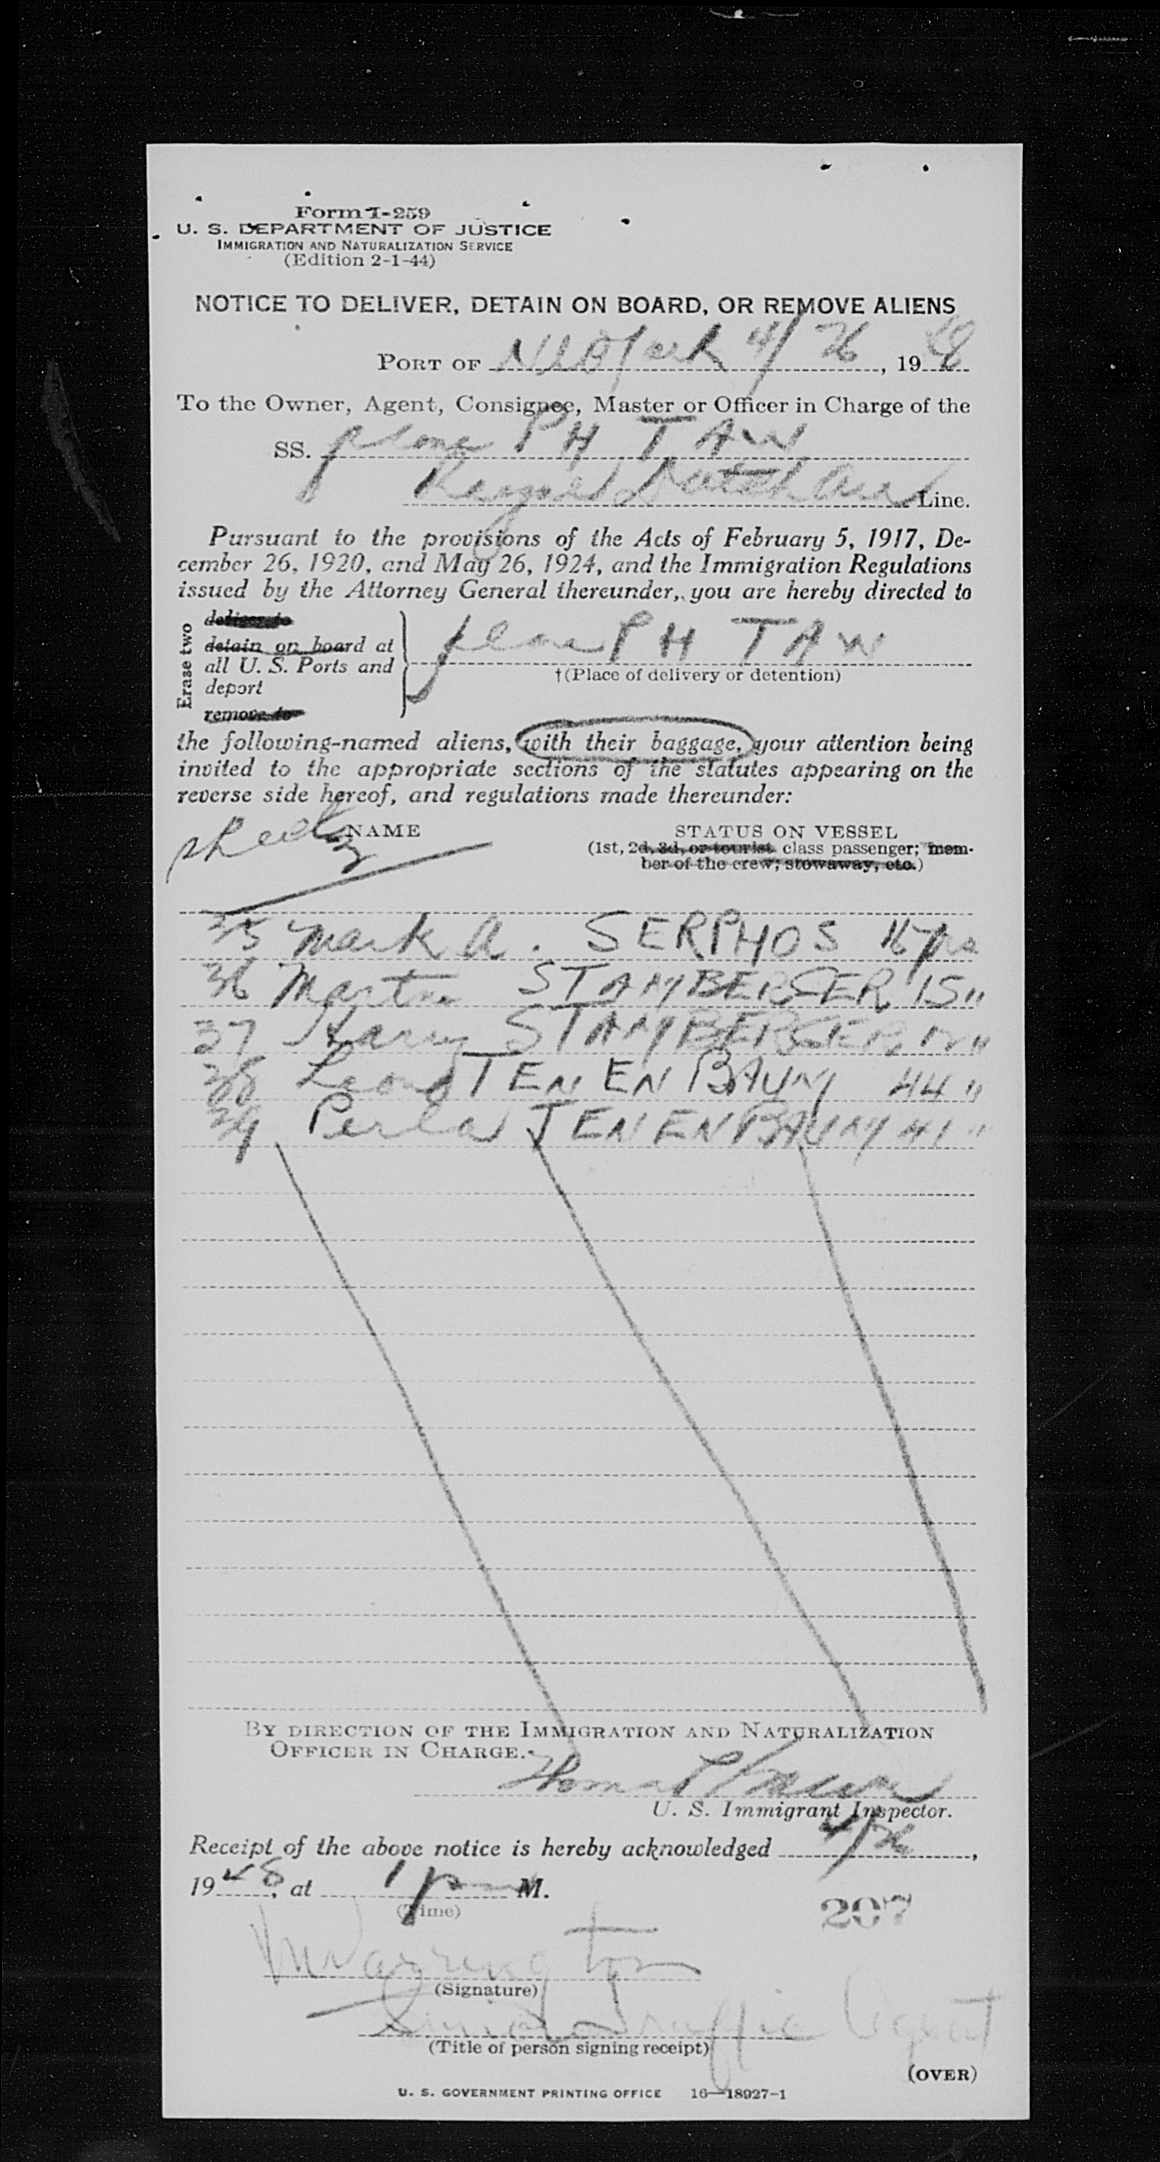 Form I-259
U. S. DEPARTMENT OF JUSTICE
IMMIGRATION AND NATURALIZATION SERVICE
(Edition 2-1-44)
NOTICE TO DELIVER, DETAIN ON BOARD, OR REMOVE ALIENS
PORT OF New York 4/26, 1948
To the Owner, Agent, Consignee, Master or Officer in Charge of the
SS. plane PH TAW
Royal Dutch Air Line.
Pursuant to the provisions of the Acts of February 5, 1917, De-
cember 26, 1920, and May 26, 1924, and the Immigration Regulations
issued by the Attorney General thereunder, you are hereby directed to
Erase two
deliver to
detain on board at
all U. S. Ports and
deport
remove to
plane PH TAW
†(Place of delivery or detention)
the following-named aliens, with their baggage, your attention being
invited to the appropriate sections of the statutes appearing on the
reverse side hereof, and regulations made thereunder:
sheet 2
NAME
STATUS ON VESSEL
(1st, 2d, 3d, or tourist class passenger; mem-
ber of the crew; stowaway, etc.)
35 Mark A. SERPHOS 16 yrs
36 Martin STAMBERGER 15 "
37 Harry STAMBERGER 12 "
38 Leon TENENBAUM 44 "
39 Perla TENENBAUM 41 "
BY DIRECTION OF THE IMMIGRATION AND NATURALIZATION
OFFICER IN CHARGE.
Thomas
U. S. Immigrant Inspector.
Receipt of the above notice is hereby acknowledged 4/26,
1948, at 1 p M.
(Time)
207
Warrington
(Signature)
Senior Traffic Agent
(Title of person signing receipt)
(OVER)
U. S. GOVERNMENT PRINTING OFFICE 16—18927-1